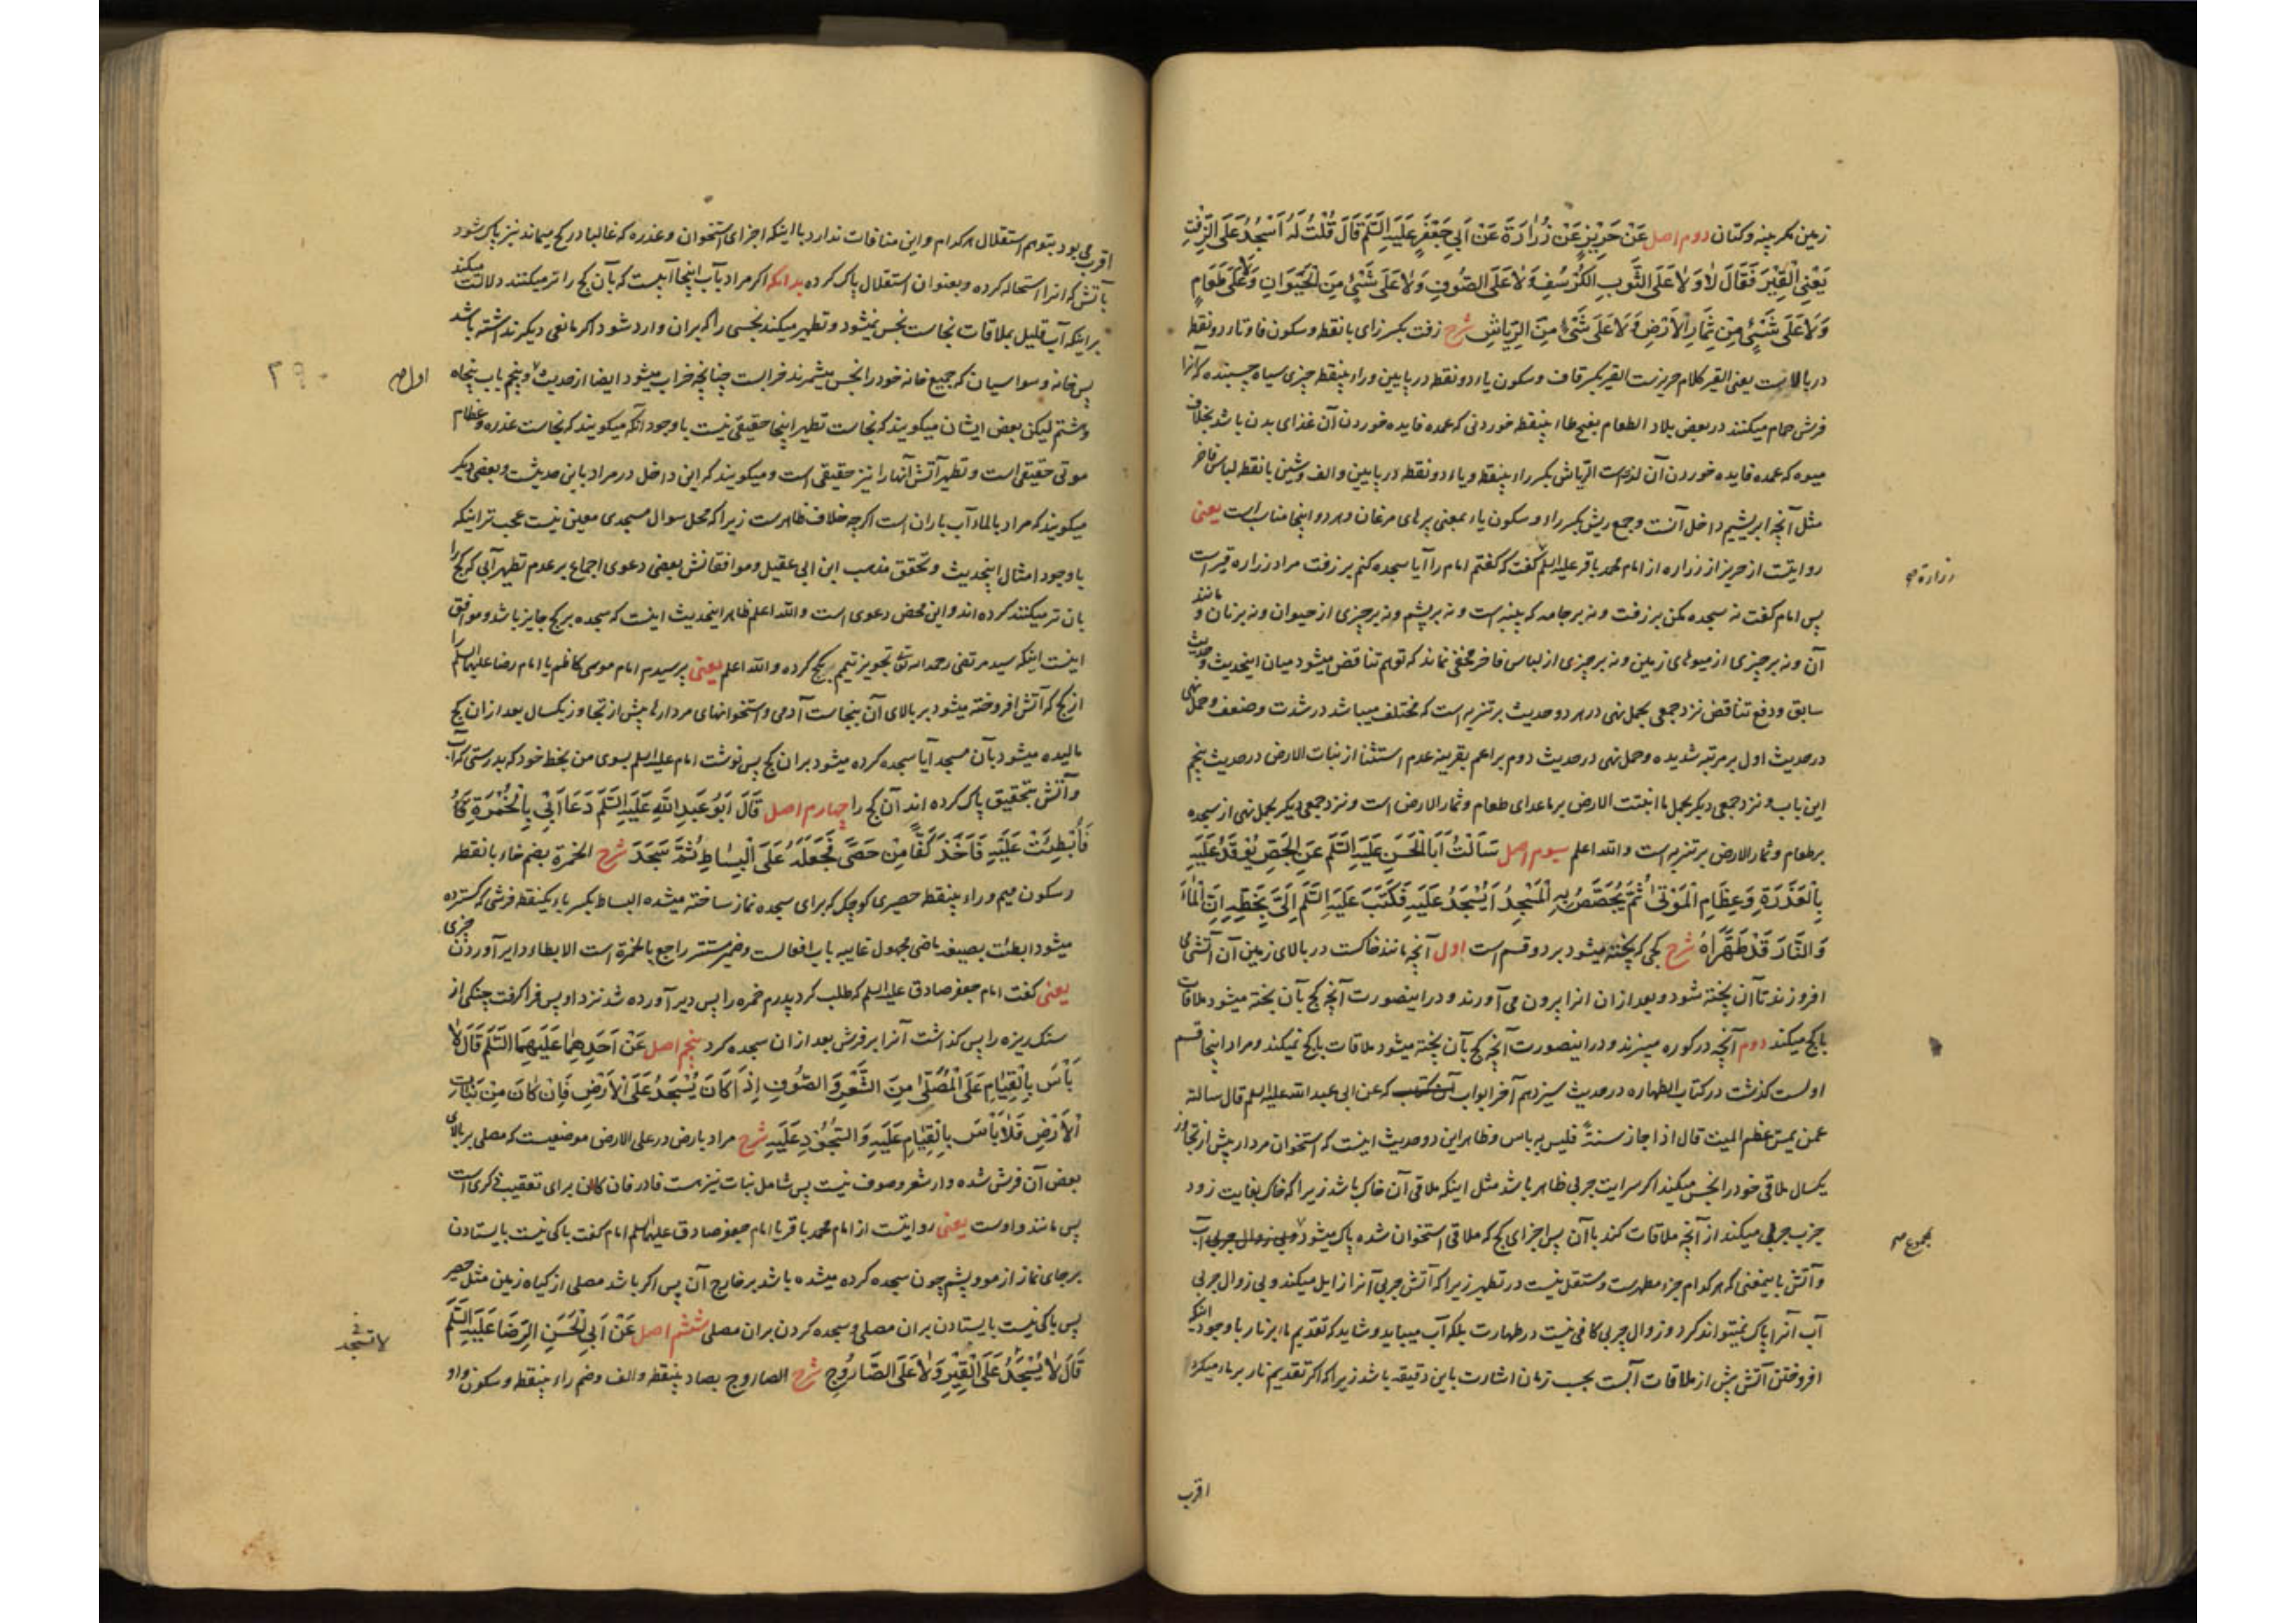 زمین مکر پنبه و کتان دوم اصل عَنْ حَرِیْزٍ عَنْ زُرَارَةَ عَنْ اَبِی جَعْفَرٍ عَلَیْهِ السَّلَم قَالَ قُلْتُ لَهُ اَسْجُدُ عَلَی الزِّفْتِ
یَعْنِی الْقِیْرَ فَقَالَ لَا وَلَا عَلَی الثَّوبِ الکُرْسُفِ وَلَا عَلَی الصُّوفِ وَلَا عَلَی شَیْءٍ مِنَ الْحَیَوَانِ وَلَا عَلَی طَعَامٍ
وَلَا عَلَی شَیْءٍ مِنْ ثِمَارِ الْاَرْضِ وَلَا عَلَی شَیْءٍ مِنَ الرِّیَاشِ شرح زفت بکسر زای بانقطه و سکون فا و تاء دو نقطه
در بالاست یعنی القیر کلام حریزست القیر بکسر قاف و سکون یاء دو نقطه در پایین و راء بینقطه چیزی سیاه چسبنده که آنرا
فرش حمام میکنند در بعض بلاد الطعام بفتح طاء بینقطه خوردنی که عمده فایده خوردن آن غذای بدن باشد بخلاف
میوه که عمده فایده خوردن آن لذتست الریاش بکسر راء بینقطه و یاء دو نقطه در پایین و الف و شین بانقطه لباس فاخر
مثل آنچه ابریشم داخل آنست و جمع ریش بکسر راء و سکون یاء بمعنی پرهای مرغان و هر دو اینجا مناسب است یعنی
روایتست از حریز از زراره از امام محمد باقر علیه السلم گفت که گفتم امام را آیا سجده کنم بر زفت مراد زراره قیر است
زرارة
پس امام گفت نه سجده مکن بر زفت و نه بر جامه که پنبه است و نه بر پشم و نه بر چیزی از حیوان و نه بر نان و مانند
آن و نه بر چیزی از میوهای زمین و نه بر چیزی از لباس فاخر مخفی نماند که توهم تناقض میشود میان اینحدیث و حدیث
سابق و دفع تناقض نزد جمعی بحمل نهی در هر دو حدیث بر تنزیه است که مختلف میباشد در شدت و ضعف و حمل نهی
در حدیث اول بر مرتبه شدیده و حمل نهی در حدیث دوم بر اعم بقرینه عدم استثنا از نبات الارض در حدیث پنجم
این باب و نزد جمعی دیکر بحمل ما انبتت الارض بر ماعدای طعام و ثمار الارض است و نزد جمعی دیکر بحمل نهی از سجده
بر طعام و ثمار الارض بر تنزیه است و الله اعلم سیوم اصل سَاَلْتُ اَبَا الْحَسَنِ عَلَیْهِ السَّلَم عَنِ الْجَصِّ یُوْقَدُ عَلَیْهِ
بِالْعَذِرَةِ وَعِظَامِ الْمَوْتیٰ ثُمَّ یُجَصَّصُ بِهِ الْمَسْجِدُ اَیُسْجَدُ عَلَیْهِ فَکَتَبَ عَلَیْهِ السَّلَم اِلَیَّ بِخَطِّهِ اِنَّ الْمَاءَ
وَالنَّارَ قَدْ طَهَّرَاهُ شرح کجی که پخته میشود بر دو قسم است اول آنچه مانند خاکست در بالای زمین آن آتشی
افروزند تا آن پخته شود و بعد از ان آنرا بیرون می آورند و در اینصورت آنچه کج بآن پخته میشود ملاقات
با کج میکند دوم آنچه در کوره میپزند و در اینصورت آنچه کج بآن پخته میشود ملاقات با کج نمیکند و مراد اینجا قسم
اولست کذشت در کتاب الطهاره در حدیث سیزدهم آخر ابواب که عن ابی عبد الله علیه السلم قال سالته
عمن یمس عظم المیت قال اذا جاز سنة فلیس به باس و ظاهر این دو حدیث اینست که استخوان مردار پیش از تجاوز
یکسال ملاقی خود را نجس میکند اکر سرایت چربی ظاهر باشد مثل اینکه ملاقی آن خاک باشد زیرا که خاک بغایت زود
جذب چربی میکند از آنچه ملاقات کند با آن پس اجزای کج که ملاقی استخوان شده پاک میشود
مجموع
و آتش باینمعنی که هر کدام جزء مطهرست و مستقل نیست در تطهیر زیرا که آتش چربی آنرا زایل میکند و بی زوال چربی
آب آنرا پاک نمیتواند کرد و زوال چربی کافی نیست در طهارت بلکه آب میباید و شاید که تقدیم ماء بر نار با وجود اینکه
افروختن آتش پیش از ملاقات آبست بحسب زمان اشارت باین دقیقه باشد زیرا که اکر تقدیم نار بر ماء میکرد
اقرب
اقرب می بود بتوهم استقلال هر کدام و این منافات ندارد با اینکه اجزای استخوان و عذره که غالبا در کج میماند نیز پاک شود
بآتش که آنرا استحاله کرده و بعنوان استقلال پاک کرده بدانکه اکر مراد بآب اینجا آبیست که بآن کج را تر میکنند دلالت میکند
بر اینکه آب قلیل بملاقات نجاست نجس نمیشود و تطهیر میکند نجسی را که بر ان وارد شود اکر مانعی دیکر نداشته باشد
پس خانه وسواسیان که جمیع خانه خود را نجس میشمرند خرابست چنانچه خراب میشود ایضا از حدیث پنجم باب پنجاه
۲۹۰
و ششم لیکن بعض ایشان میکویند که نجاست تطهیر اینجا حقیقی نیست با وجود آنکه میکویند که نجاست عذره و عظام
موتی حقیقی است و تطهیر آتش آنها را نیز حقیقی است و میکویند که این داخل در مراد باین حدیثست و بعضی دیکر
میکویند که مراد بالماء آب باران است اکرچه خلاف ظاهرست زیرا که محل سوال مسجدی معین نیست عجب تر اینکه
با وجود امثال اینحدیث و تحقق مذهب ابن ابی عقیل و موافقانش بعضی دعوی اجماع بر عدم تطهیر آبی که کج را
بان تر میکنند کرده اند و این محض دعوی است و الله اعلم ظاهر اینحدیث اینست که سجده بر کج جایز باشد و موافق
اینست اینکه سید مرتضی رحمه الله تعالی تجویز تیمم بکج کرده و الله اعلم یعنی پرسیدم امام موسی کاظم یا امام رضا علیهما السلم را
از کج که آتش افروخته میشود بر بالای آن بنجاست آدمی و استخوانهای مردارها پیش از تجاوز یکسال بعد از ان کج
مالیده میشود بآن مسجد آیا سجده کرده میشود بر ان کج پس نوشت امام علیه السلم بسوی من بخط خود که بدرستی که آب
و آتش بتحقیق پاک کرده اند آن کج را چهارم اصل قَالَ اَبُو عَبْدِ اللهِ عَلَیْهِ السَّلَم دَعَا اَبِی بِالْخُمْرَةِ
فَاُبْطِئَتْ عَلَیْهِ فَاَخَذَ کَفًّا مِنْ حَصًی فَجَعَلَهُ عَلَی الْبِسَاطِ ثُمَّ سَجَدَ شرح الخمرة بضم خاء بانقطه
و سکون میم و راء بینقطه حصیری کوچک که برای سجده نماز ساخته میشده البساط بکسر باء یکنقطه فرشی که کسترده
میشود ابطئت بصیغه ماضی مجهول غایبه باب افعالست و ضمیر مستتر راجع بالخمرة است الابطاء دیر آوردن چیزی
یعنی کفت امام جعفر صادق علیه السلم که طلب کرد پدرم خمره را پس دیر آورده شد نزد او پس فرا کرفت چنکی از
سنک ریزه را پس کذاشت آنرا بر فرش بعد از ان سجده کرد پنجم اصل عَنْ اَحَدِهِمَا عَلَیْهِمَا السَّلَم قَالَ لَا
بَاْسَ بِالْقِیَامِ عَلَی الْمُصَلَّی مِنَ الشَّعْرِ وَالصُّوفِ اِذَا کَانَ یُسْجَدُ عَلَی الْاَرْضِ فَاِنْ کَانَ مِنْ نَبَاتِ
الْاَرْضِ فَلَا بَاْسَ بِالْقِیَامِ عَلَیْهِ وَالسُّجُوْدِ عَلَیْهِ شرح مراد بارض در علی الارض موضعیست که مصلی بر بالای
بعض آن فرش شده و از شعر و صوف نیست پس شامل نبات نیز هست فا در فان کان برای تعقیب ذکری است
پس مانند واوست یعنی روایتست از امام محمد باقر یا امام جعفر صادق علیهما السلم امام کفت باکی نیست بایستادن
بر جای نماز از مو و پشم چون سجده کرده میشده باشد بر خارج آن پس اکر باشد مصلی از کیاه زمین مثل حصیر
پس باکی نیست بایستادن بران مصلی و سجده کردن بران مصلی ششم اصل عَنْ اَبِی الْحَسَنِ الرِّضَا عَلَیْهِ السَّلَم
لا تسجد
قَالَ لَا یُسْجَدُ عَلَی الْقِیْرِ وَلَا عَلَی الصَّارُوجِ شرح الصاروج بصاد بینقطه و الف و ضم راء بینقطه و سکون واو